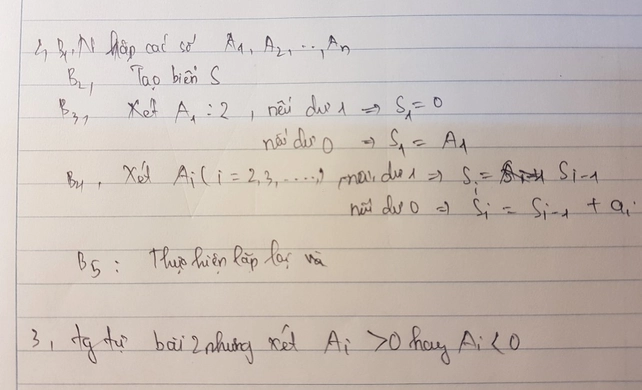 2, B1, Nhập các số A1, A2, ..., An
B2, Tạo biến S
B3, Xét A1 : 2, nếu dư 1 => S1 = 0
nếu dư 0 => S1 = A1
B4, Xét Ai (i = 2, 3, ....), nếu dư 1 => Si = Si-1
nếu dư 0 => Si = Si-1 + ai
B5 : Thực hiện lặp lại và
3, tg tự bài 2 nhưng xét Ai > 0 hay Ai < 0